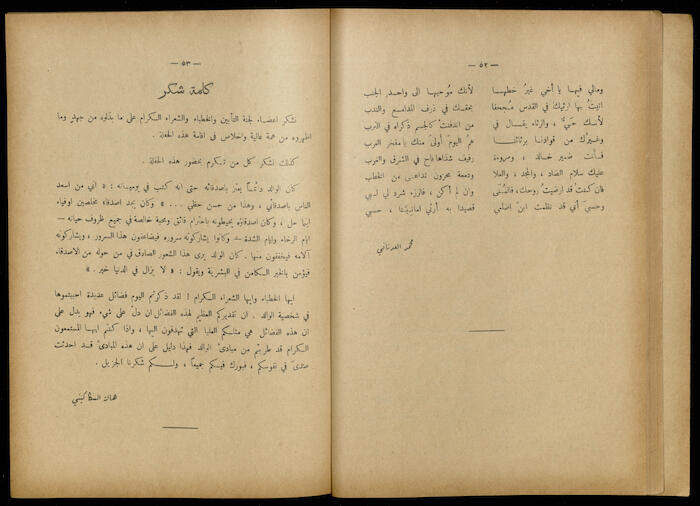 — ٥٢ —
ومالي فيها يا أخي غيرُ خطها لأنك مُوحيها الى واجد الجنب
اتيتُ بها ارثيك في القدس مُجحفا بحقك في ذرف المدامع والندب
لأنك حيٌّ ، والرثاء يقال في من اندفنت كالجسم ذكراه في الترب
وغيرك من قوادنا برثائنا همُ اليومَ أولى منك يا مفخر العرب
فأنت ضمير خالد ، ومروءة رفيف شذاها فاح في الشرق والغرب
عليك سلام الضاد ، والمجد ، والعلا ودمعة محزون تداعى من الخطب
فان كنتُ قد ارضيتُ روحك، فالمنى وان لم أكن ، فالرزء شرد لي لبي
وحسبي أني قد نظمت ابن اضلعي قصيدا به أرثي امانيّنا ، حسبي
محمد العدناني
— ٥٣ —
كلمة شكر
نشكر اعضاء لجنة التأبين والخطباء والشعراء الكرام على ما بذلوه من جهد وما
اظهروه من همة عالية واخلاص في اقامة هذه الحفلة .
كذلك نشكر كل من تكرم بحضور هذه الحفلة .
كان الوالد دائماً يعتز باصدقائه حتى انه كتب في يومياته : « اني من اسعد
الناس باصدقائي ، وهذا من حسن حظي ... » وكان يجد اصدقاء مخلصين اوفياء
اينما حل ، وكان اصدقاؤه يحيطونه باحترام فائق ومحبة خالصة في جميع ظروف حياته —
ايام الرخاء وايام الشدة — وكانوا يشاركونه سروره فيضاعفون هذا السرور ، ويشاركونه
آلامه فيخففون منها . كان الوالد يرى هذا الشعور الصادق في من حوله من الاصدقاء
فيؤمن بالخير الكامن في البشرية ويقول : « لا يزال في الدنيا خير . »
ايها الخطباء وايها الشعراء الكرام ! لقد ذكرتم اليوم فضائل عديدة احببتموها
في شخصية الوالد . ان تقديركم العظيم لهذه الفضائل ان دلّ على شيء فهو يدل على
ان هذه الفضائل هي مثلكم العليا التي تهدفون اليها ، واذا كنتم ايها المستمعون
الكرام قد طربتم من مبادئ الوالد فهذا دليل على ان هذه المبادئ قد احدثت
صدىً في نفوسكم ، فبورك فيكم جميعاً ، ولكم شكرنا الجزيل .
هالة السكاكيني